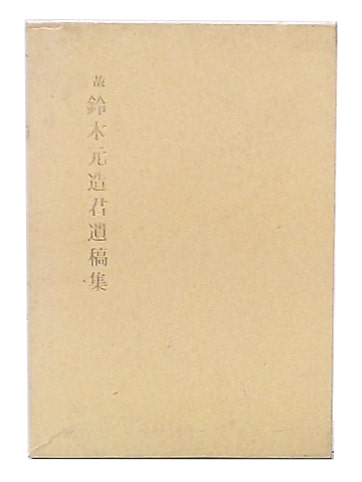 故鈴木元造君遺稿集